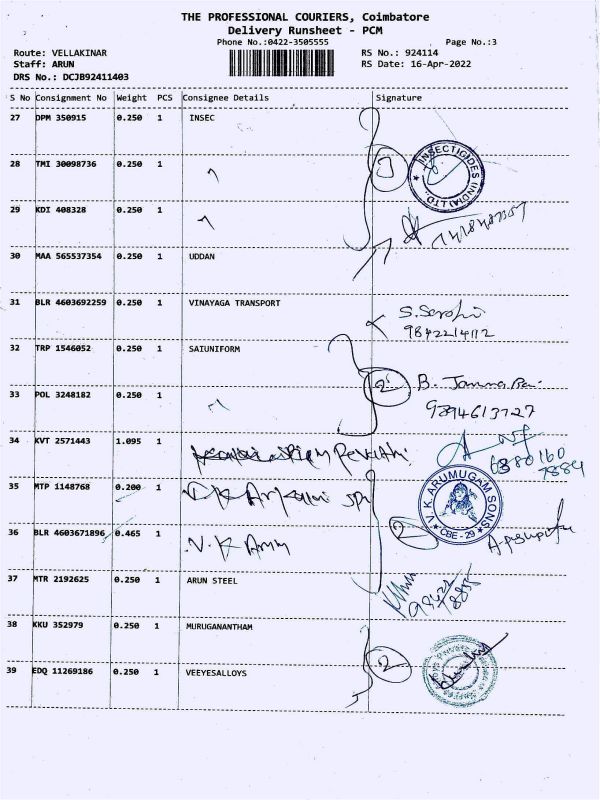 THE PROFESSIONAL COURIERS, Coimbatore
Delivery Runsheet - PCM
Phone No.:0422-3505555 Page No.:3
Route: VELLAKINAR RS No.: 924114
Staff: ARUN RS Date: 16-Apr-2022
DRS No.: DCJB92411403
S No Consignment No Weight PCS Consignee Details Signature
27 DPM 350915 0.250 1 INSEC
28 TMI 30098736 0.250 1
INSECTICIDES (INDIA) LTD.
29 KDI 408328 0.250 1
30 MAA 565537354 0.250 1 UDDAN
31 BLR 4603692259 0.250 1 VINAYAGA TRANSPORT
32 TRP 1546052 0.250 1 SAIUNIFORM
2 B.
33 POL 3248182 0.250 1
34 KVT 2571443 1.095 1
35 MTP 1148768 0.200 1
V.K. ARUMUGAM SONS
CBE-29
36 BLR 4603671896 0.465 1 V.K
37 MTR 2192625 0.250 1 ARUN STEEL
38 KKU 352979 0.250 1 MURUGANANTHAM
2
39 EDQ 11269186 0.250 1 VEEYESALLOYS